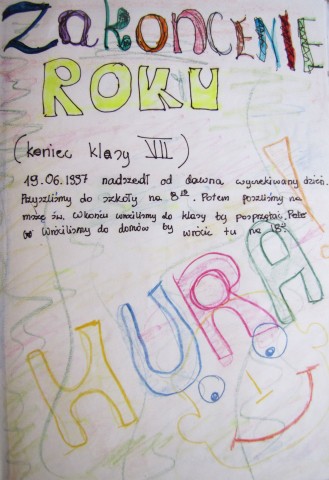 ZAKOŃCENIE
ROKU
(koniec klasy VII)
19.06.1997 nadszedł od dawna wyczekiwany dzień.
Przyszliśmy do szkoły na 8¹⁵. Potem poszliśmy na
mszę św. Wkońcu wróciliśmy do klasy by posprzątać. Potem
wróciliśmy do domów by wrócić tu na
HURA!